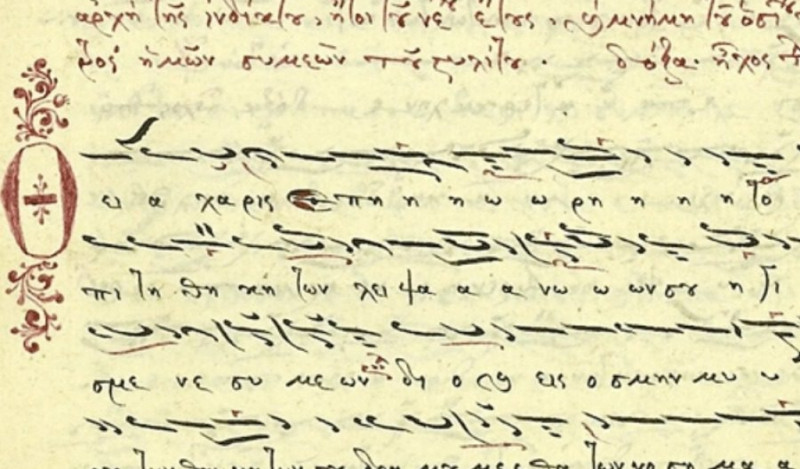 ἀρχὴ τῆς ἰνδίκτου, ἤτοι τοῦ νέου ἔτους, ϗ μνήμη τοῦ ὁσί
πρὸς ἡμῶν συμεὼν τοῦ στυλίτου. δόξα. ἦχος
Θ ει α χα ρις ε πη η η η ω ω ρη η η η το
πι τη θη κη των λει ψα α α νω ω ων σου η γι
σμε νε συ με ων δι ο ϗ εις ο σμην μυ υ